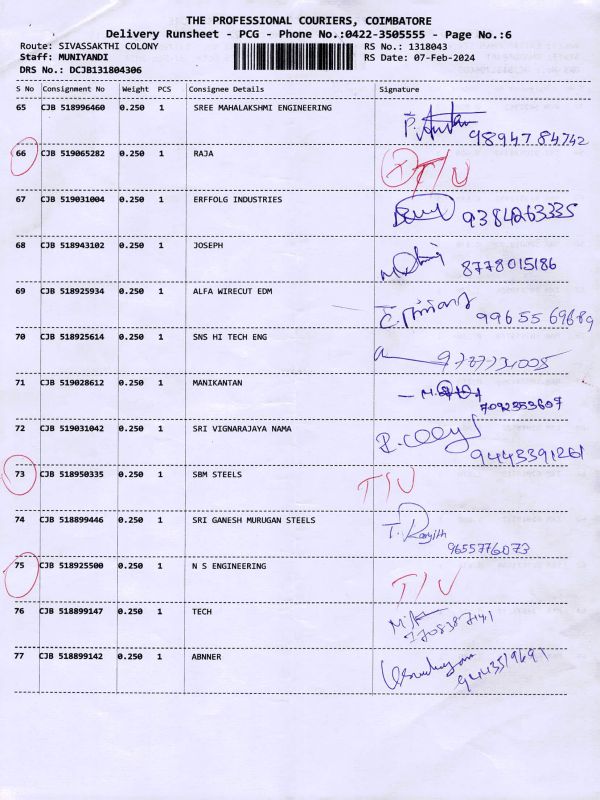 THE PROFESSIONAL COURIERS, COIMBATORE
Delivery Runsheet - PCG - Phone No.:0422-3505555 - Page No.:6
Route: SIVASSAKTHI COLONY RS No.: 1318043
Staff: MUNIYANDI RS Date: 07-Feb-2024
DRS No.: DCJB131804306
S No Consignment No Weight PCS Consignee Details Signature
65 CJB 518996460 0.250 1 SREE MAHALAKSHMI ENGINEERING
9894784742
66 CJB 519065282 0.250 1 RAJA T/U
67 CJB 519031004 0.250 1 ERFFOLG INDUSTRIES 9384263335
68 CJB 518943102 0.250 1 JOSEPH 8778015186
69 CJB 518925934 0.250 1 ALFA WIRECUT EDM 9965569689
70 CJB 518925614 0.250 1 SNS HI TECH ENG
71 CJB 519028612 0.250 1 MANIKANTAN
7092353607
72 CJB 519031042 0.250 1 SRI VIGNARAJAYA NAMA
9443391261
73 CJB 518950335 0.250 1 SBM STEELS T/U
74 CJB 518899446 0.250 1 SRI GANESH MURUGAN STEELS T. Ranjith
9655776073
75 CJB 518925500 0.250 1 N S ENGINEERING T/U
76 CJB 518899147 0.250 1 TECH
7708387141
77 CJB 518899142 0.250 1 ABNNER
9443519691